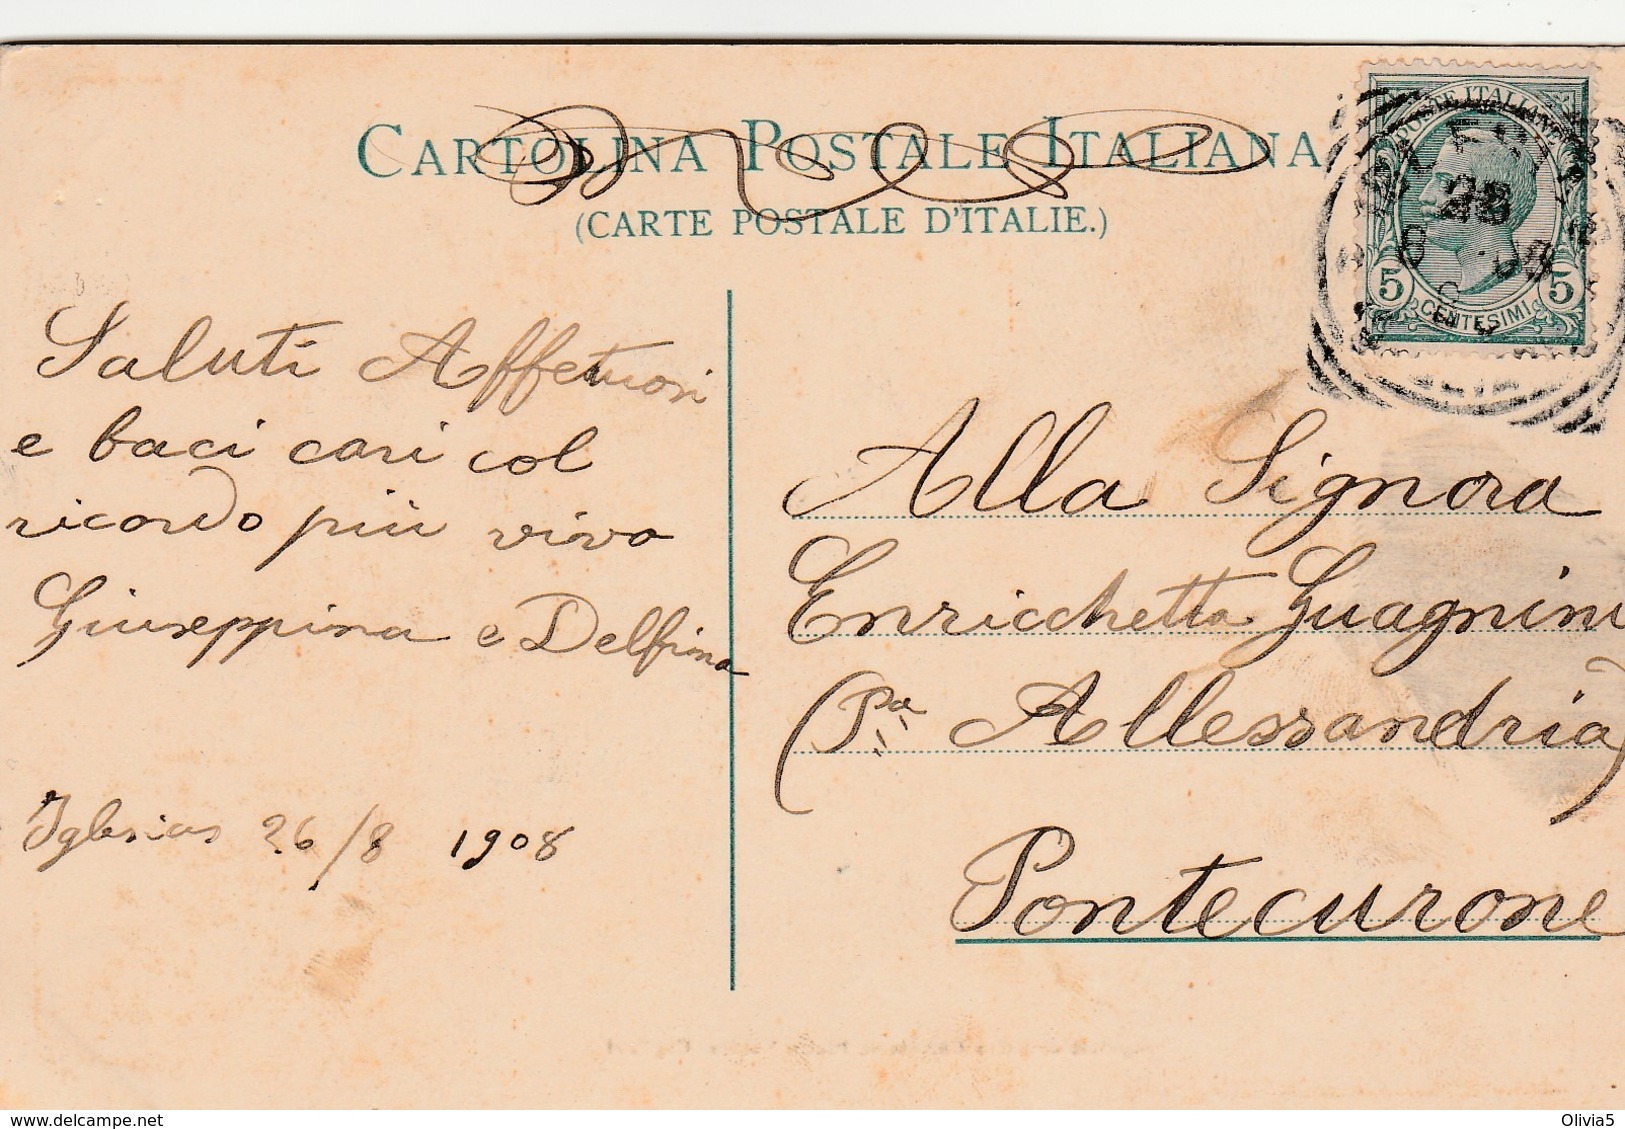 CARTOLINA POSTALE ITALIANA
(CARTE POSTALE D'ITALIE.)
POSTE ITALIANE
5 5
CENTESIMI
Saluti Affetuosi
e baci cari col
ricordo più vivo
Giuseppina e Delfina
Iglesias 26/8 1908
Alla Signora
Enricchetta Guagnini
(Pa Allessandria)
Pontecurone
delcampe.net
Olivia5